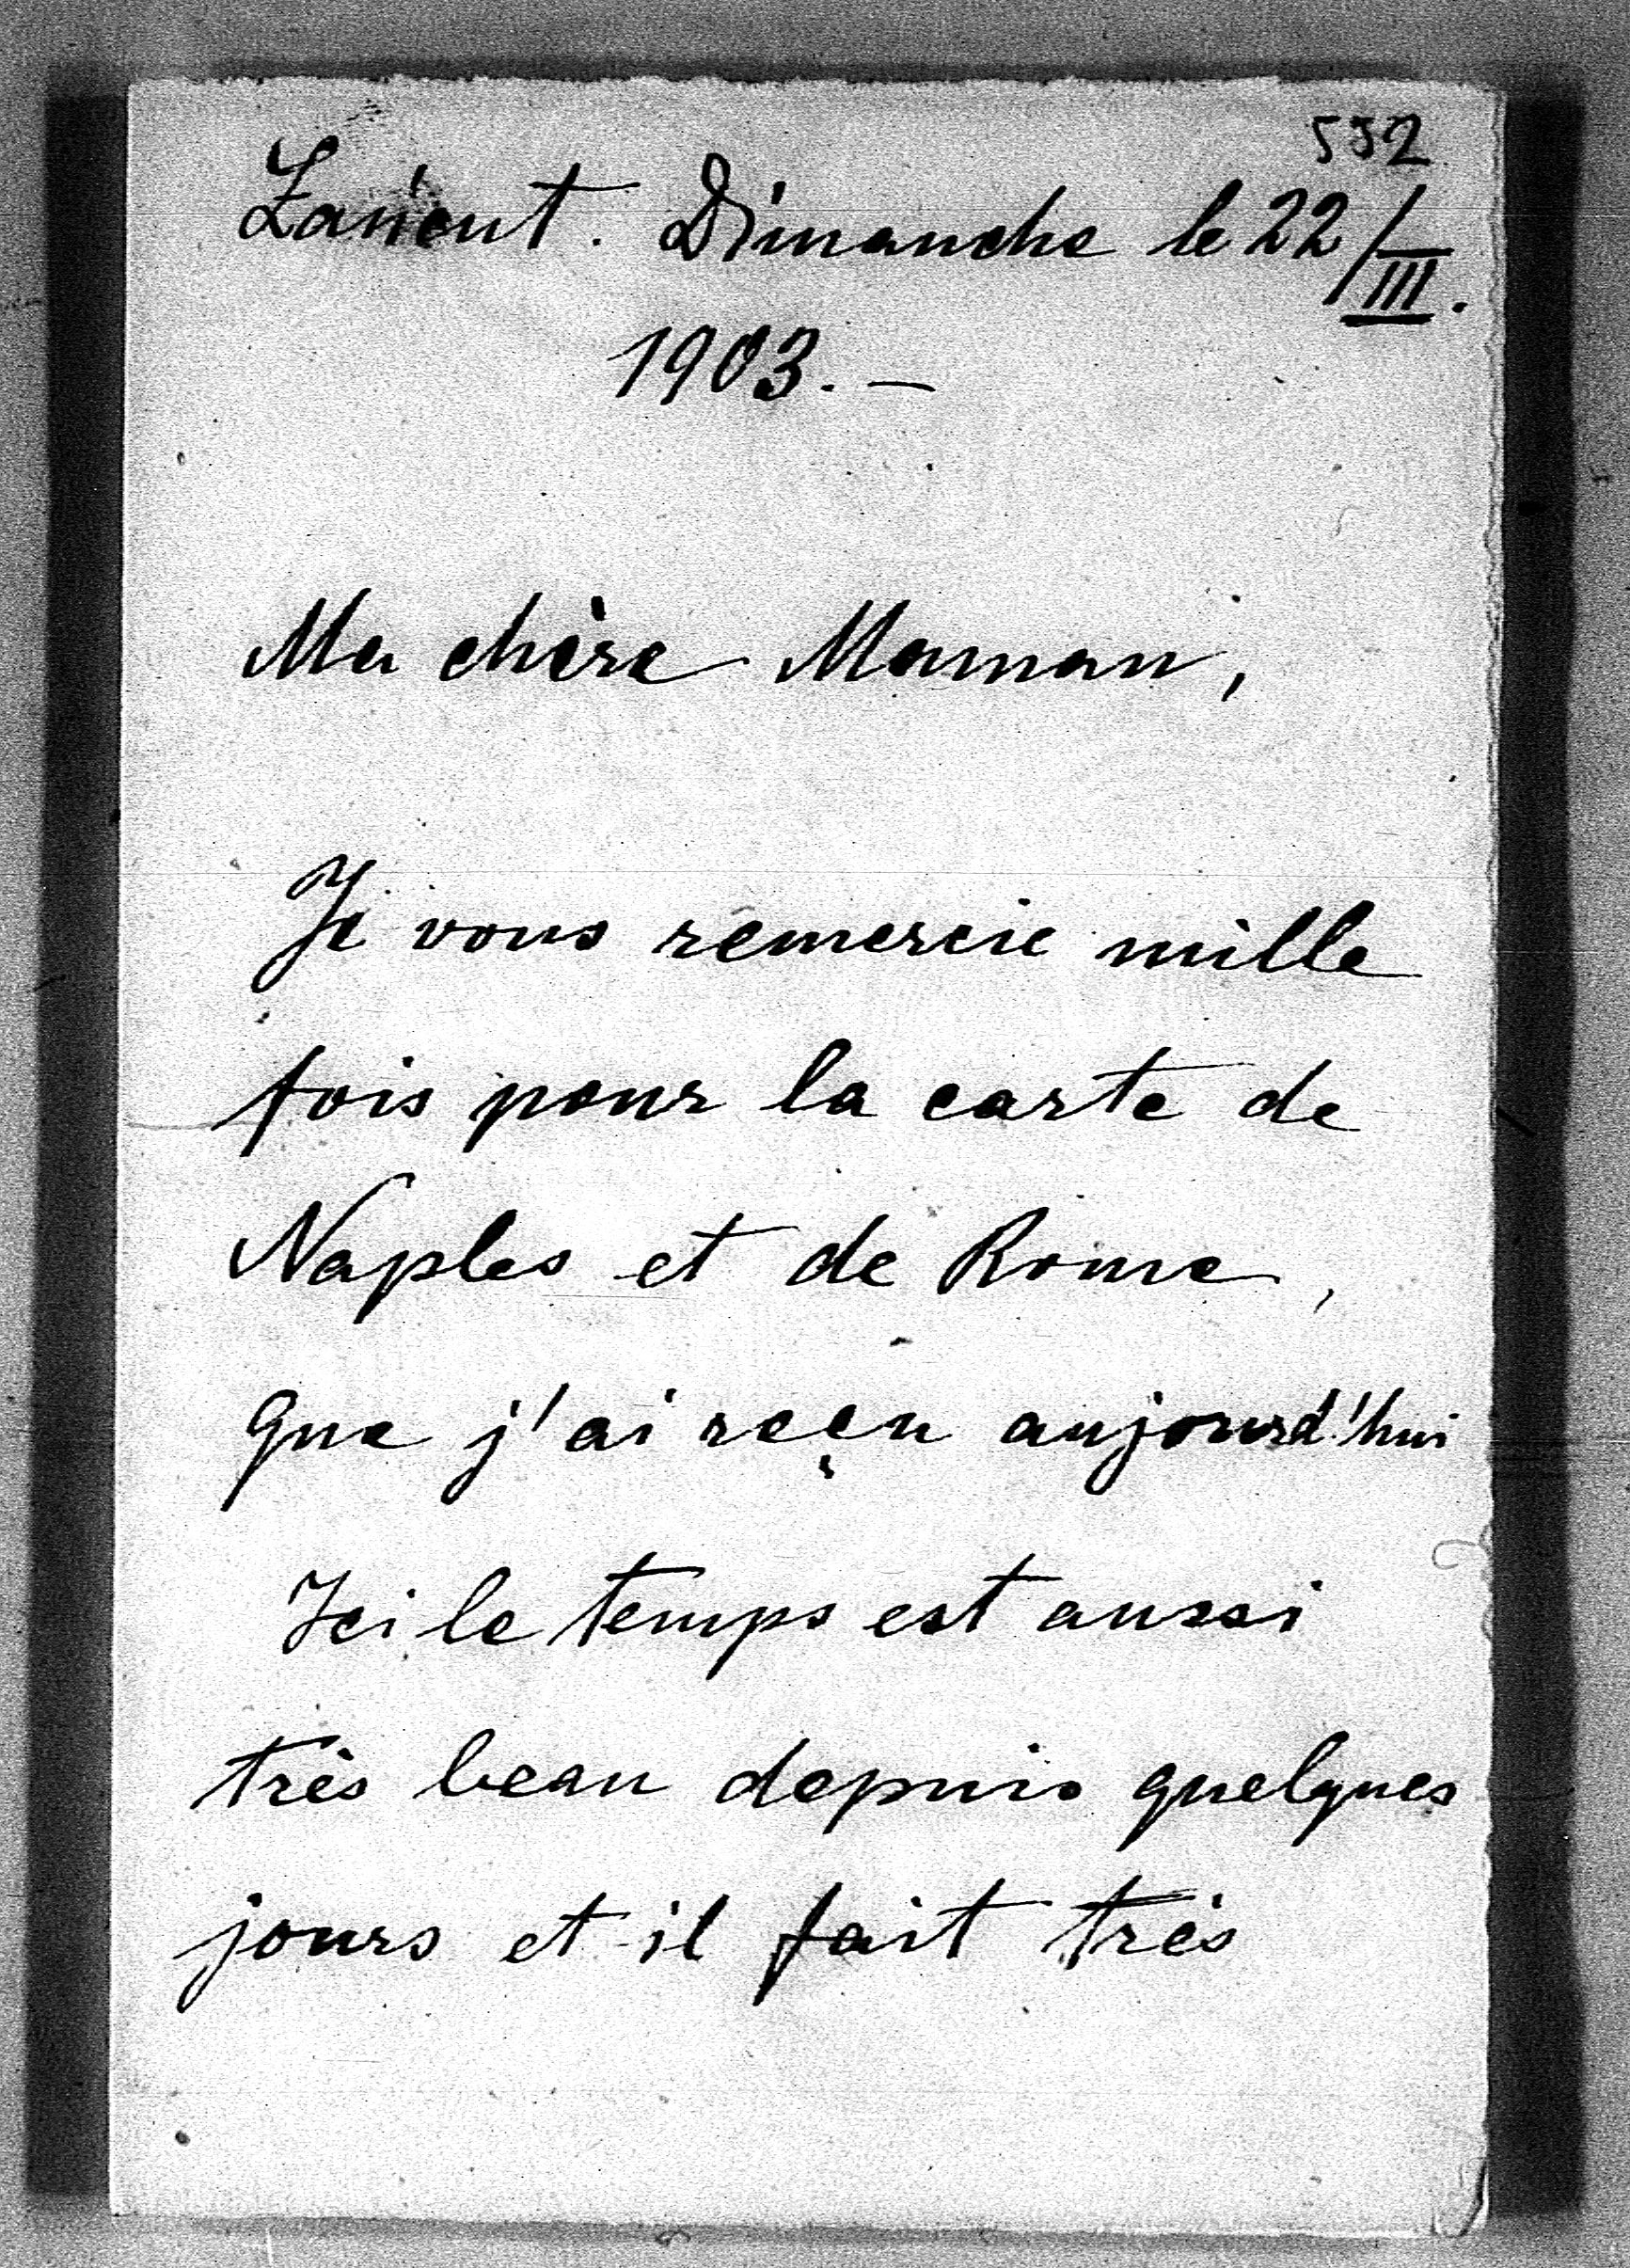 552
Łańcut. Dimanche le 22/III.
1903. –
Ma chère Maman,
Je vous remercie mille
fois pour la carte de
Naples et de Rome,
que j'ai reçu aujourd'hui
Ici le temps est aussi
très beau depuis quelques
jours et il fait très